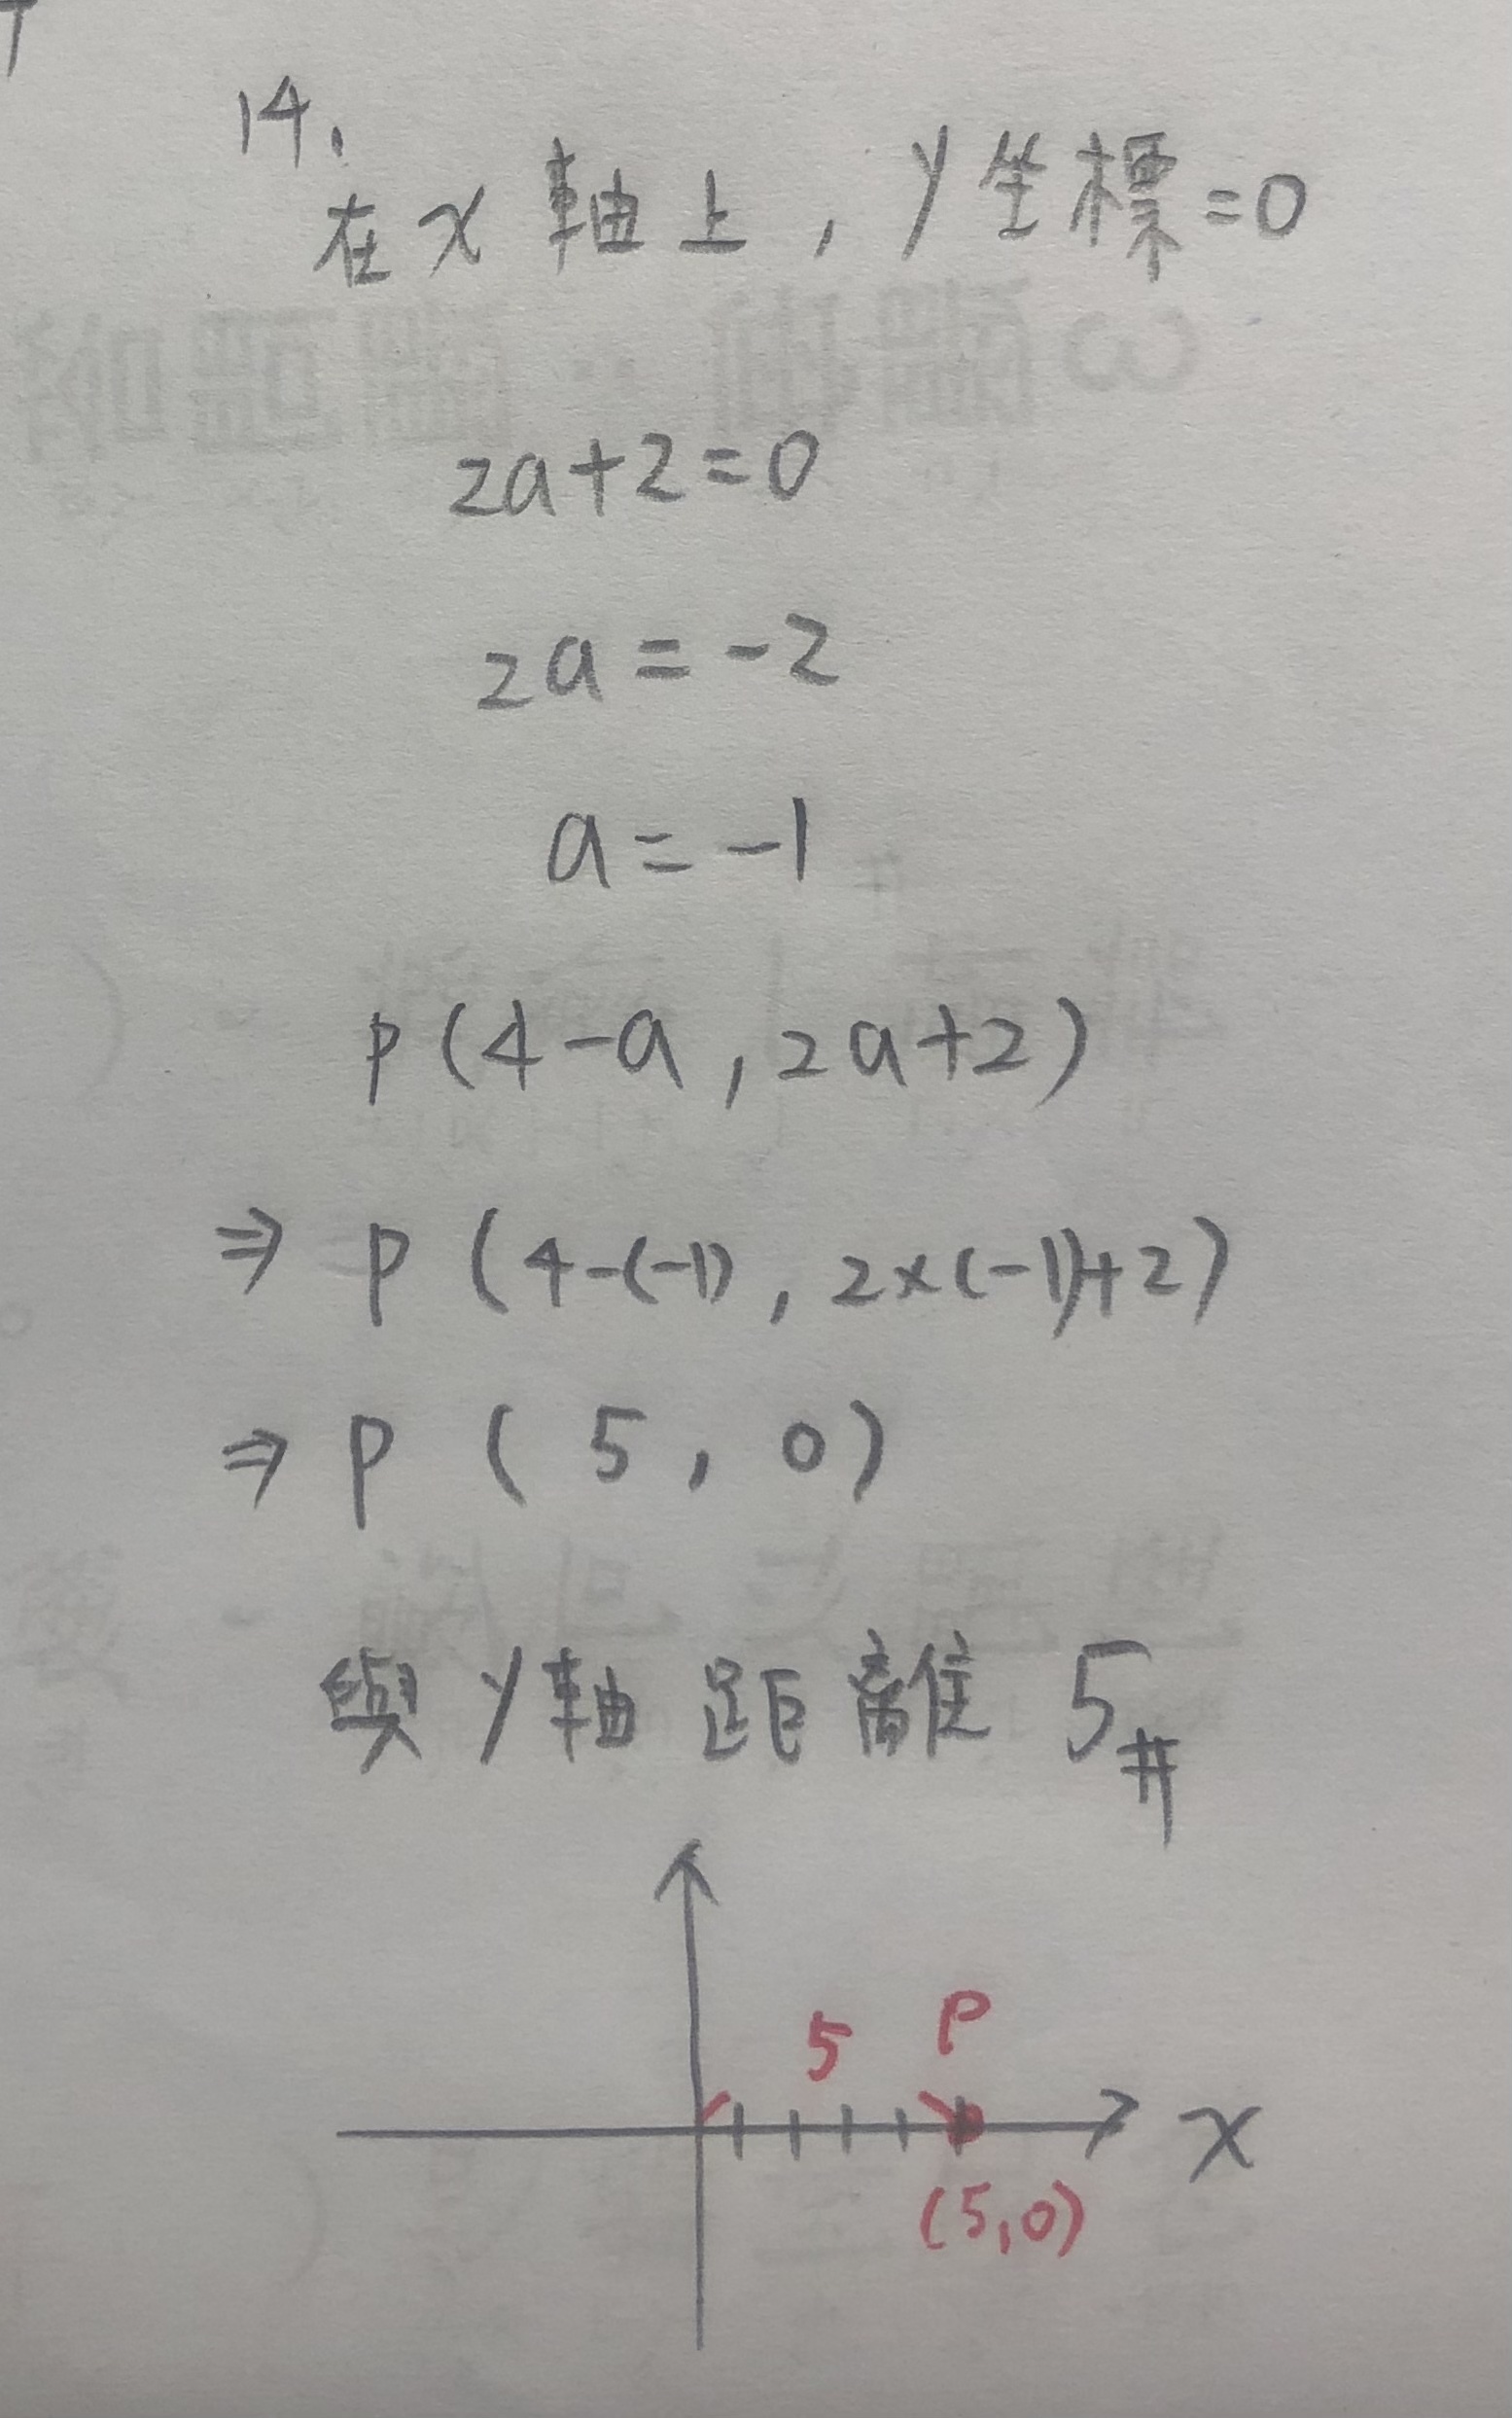 14.
在 x 軸上, y坐標=0
2a+2=0
2a=-2
a=-1
P(4-a, 2a+2)
⇒ P (4-(-1), 2×(-1)+2)
⇒ P ( 5, 0)
與 y軸 距離 5#
5 P
x
(5,0)